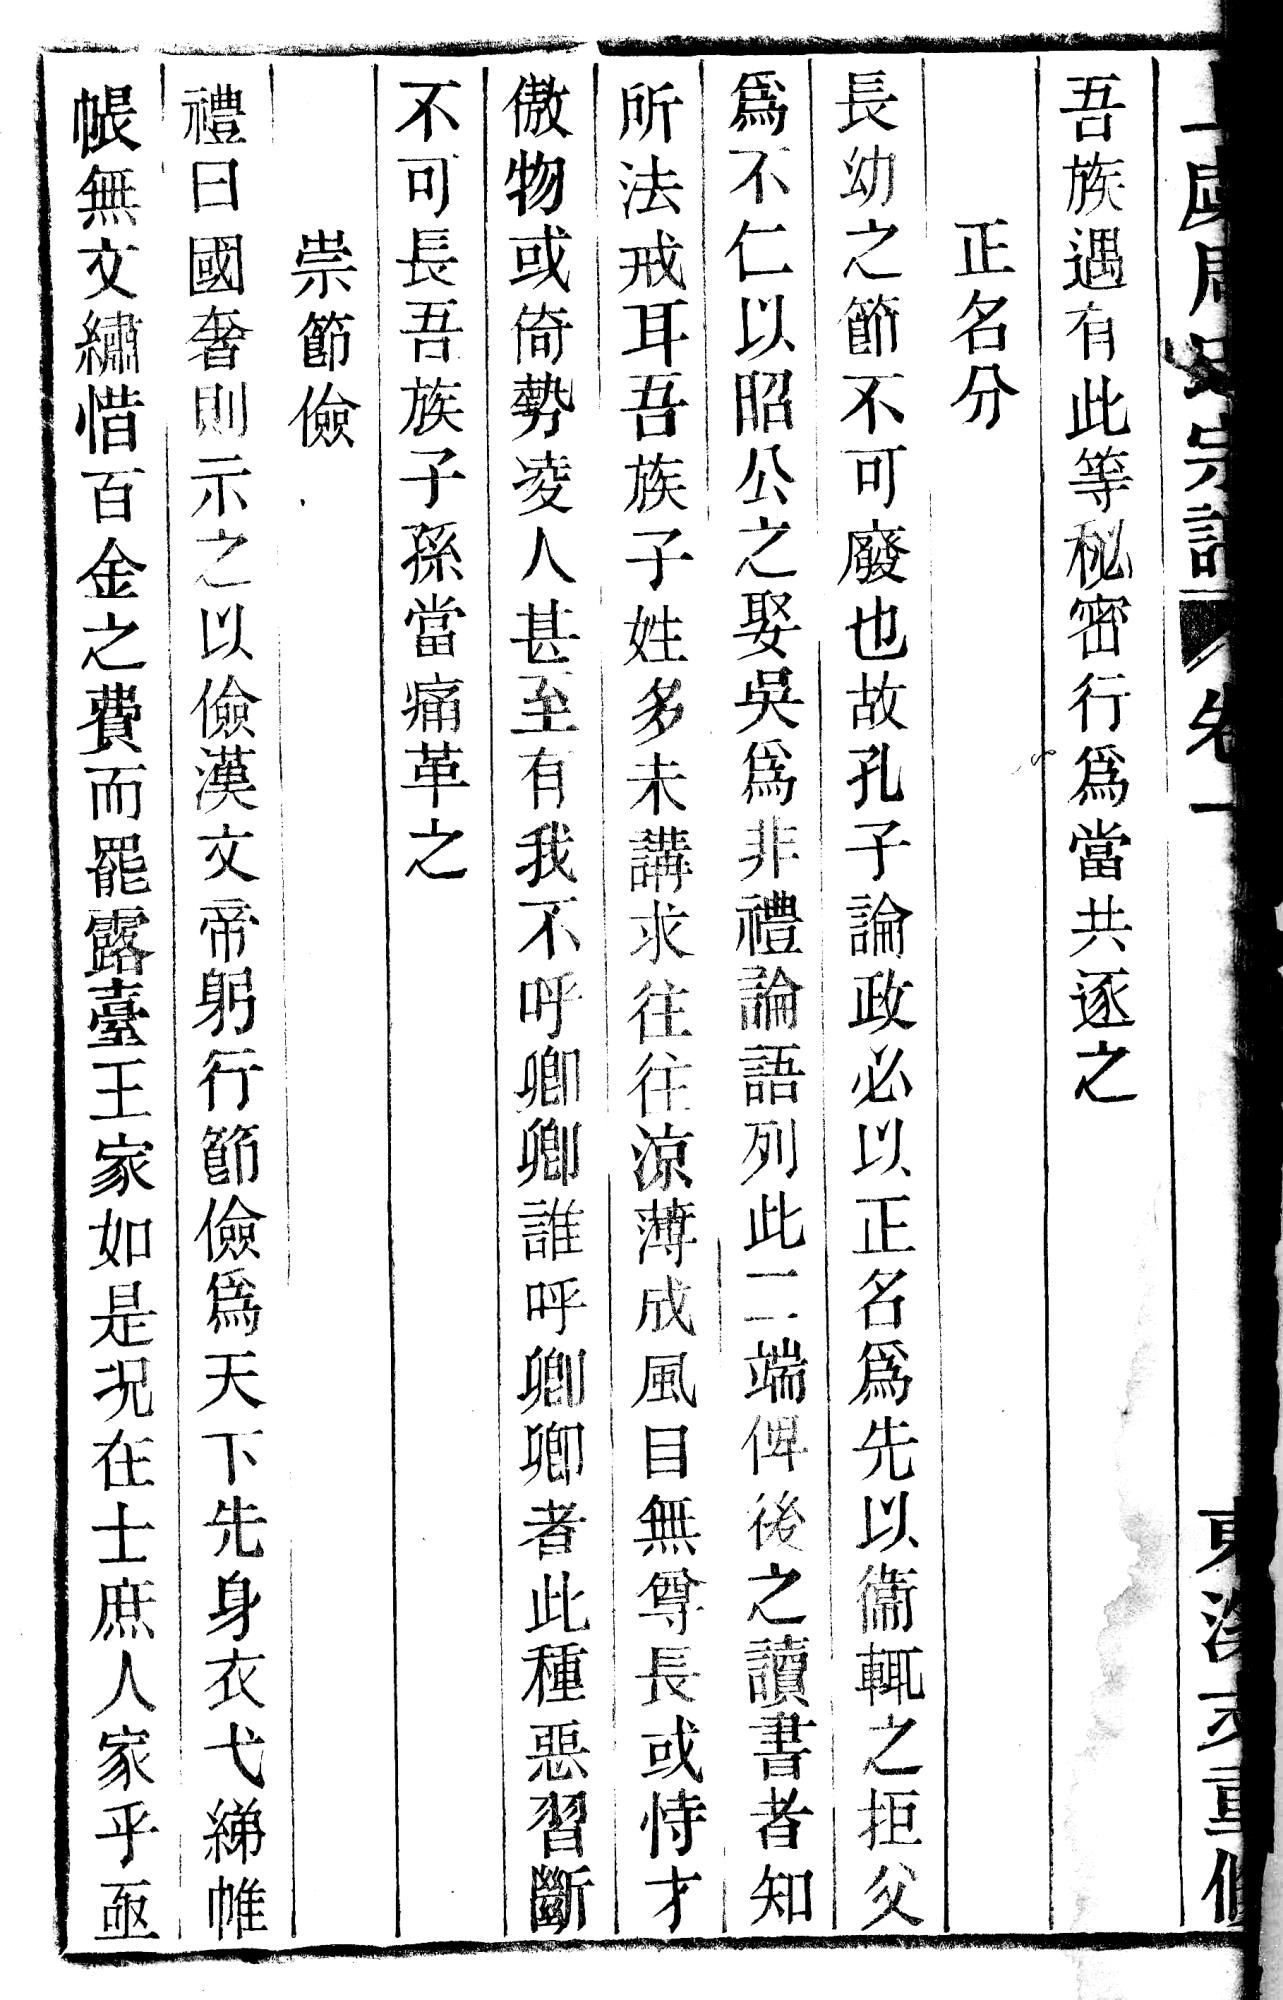 周氏宗譜 卷一
吾族遇有此等秘密行爲當共逐之
正名分
長幼之節不可廢也故孔子論政必以正名爲先以衞輒之拒父
爲不仁以昭公之娶吳爲非禮論語列此二端俾後之讀書者知
所法戒耳吾族子姓多未講求往往涼薄成風目無尊長或恃才
傲物或倚勢凌人甚至有我不呼卿卿誰呼卿卿者此種惡習斷
不可長吾族子孫當痛革之
崇節儉
禮曰國奢則示之以儉漢文帝躬行節儉爲天下先身衣弋綈帷
帳無文繡惜百金之費而罷露臺王家如是況在士庶人家乎亟